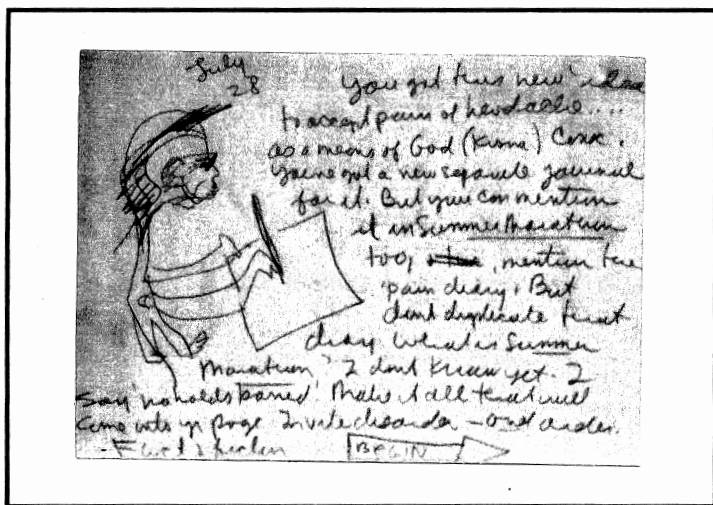 July
28
You got this new idea
to accept pain of headache....
as a means of God (Krsna) Consc.
You've got a new separate journal
for it. But you can mention
it in Summer Marathon
too, mention the
pain diary. But
don't duplicate that
diary. What is Summer
Marathon? I don't know yet. I
say 'no holds barred.' Make it all that will
come into yr page. Invite disorder – and order.
BEGIN